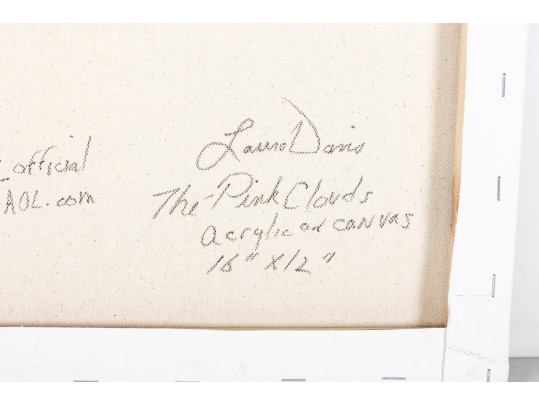 _official
AOL.com
Lauro Davis
The Pink Clouds
acrylic on canvas
16" x 12"